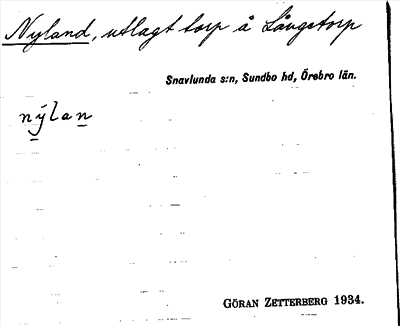 Nyland, utlagt torp å Långstorp
Snavlunda s:n, Sundbo hd, Örebro län.
nýlan
GÖRAN ZETTERBERG 1934.